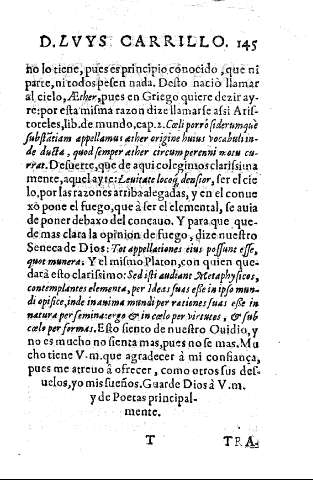 D. LVYS CARRILLO. 145
no lo tiene, pues es principio conocido, que ni
parte, ni todo pesen nada. Desto naciò llamar
al cielo, Æther, pues en Griego quiere dezir ay-
re: por esta misma razon dize llamarse assi Aris-
toteles, lib. de mundo, cap. 2. Cœli porrò siderumquè
substãtiam appellamus æther origine huius vocabuli in-
de ducta, quod semper æther circum perenni motu cu-
rrat. De suerte, que de aqui colegimos clarissima
mente, aquel ayre: Leuitate locoq, densior, ser el cie
lo, por las razones arriba alegadas, y en el conue
xò pone el fuego, que à ser el elemental, se auia
de poner debaxo del concauo. Y para que que-
de mas clara la opinion de fuego, dize nuestro
Seneca de Dios: Tot appellationes eius possunt esse,
quot munera: Y el mismo Platon, con quien que-
darà esto clarissimo: Sed isti audiant Metaphysicos,
contemplantes elementa, per Ideas suas esse in ipso mun-
di opifice, inde in anima mundi per rationes suas esse in
natura per semina: ergo & in cœlo per virtutes, & sub
cœlo per formas. Esto siento de nuestro Ouidio, y
no es mucho no sienta mas, pues no se mas. Mu
cho tiene V.m. que agradecer à mi confiança,
pues me atreuo à ofrecer, como otros sus des-
uelos, yo mis sueños. Guarde Dios à V.m.
y de Poetas principal-
mente.
T TRA.